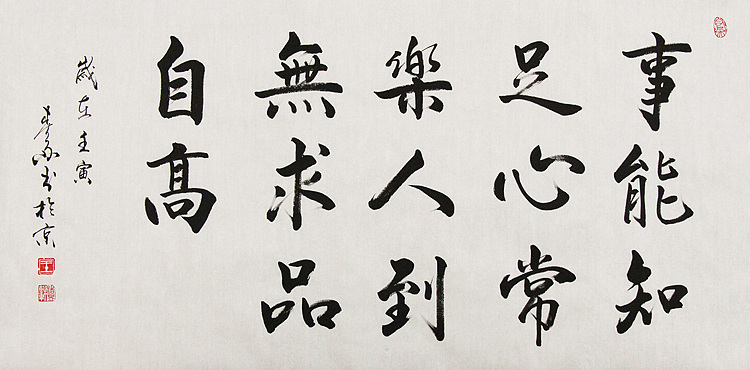 事能知
足心常
樂人到
無求品
自高
歲在壬寅
書於京